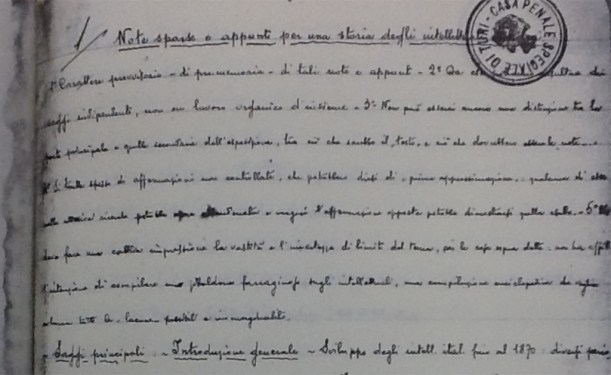 1) Note sparse e appunti per una storia degli intellettu
CASA PENALE SPECIALE DI TURI
1° Carattere provvisorio - di promemoria - di tali note e appunti - 2° Da
saggi indipendenti, non un lavoro organico d'insieme - 3° Non può esserci ancora una distinzione tra la
parte principale e quelle secondarie dell'esposizione, tra ciò che sarebbe il "testo" e ciò che dovrebbero essere le "note" -
4° Si tratta spesso di affermazioni non controllate, che potrebbero dirsi di "prima approssimazione": qualcuna di esse
nelle ulteriori ricerche potrebbe essere abbandonata e magari l'affermazione opposta potrebbe dimostrarsi quella esatta - 5° Non
deve fare una cattiva impressione la vastità e l'incertezza di limiti del tema, per le cose sopra dette: non ha affatto
l'intenzione di compilare uno zibaldone farraginoso sugli intellettuali, una compilazione enciclopedica che voglia
colmare tutte le "lacune" possibili e immaginabili.
- Saggi principali - Introduzione generale - Sviluppo degli intell. ital. fino al 1870: diversi